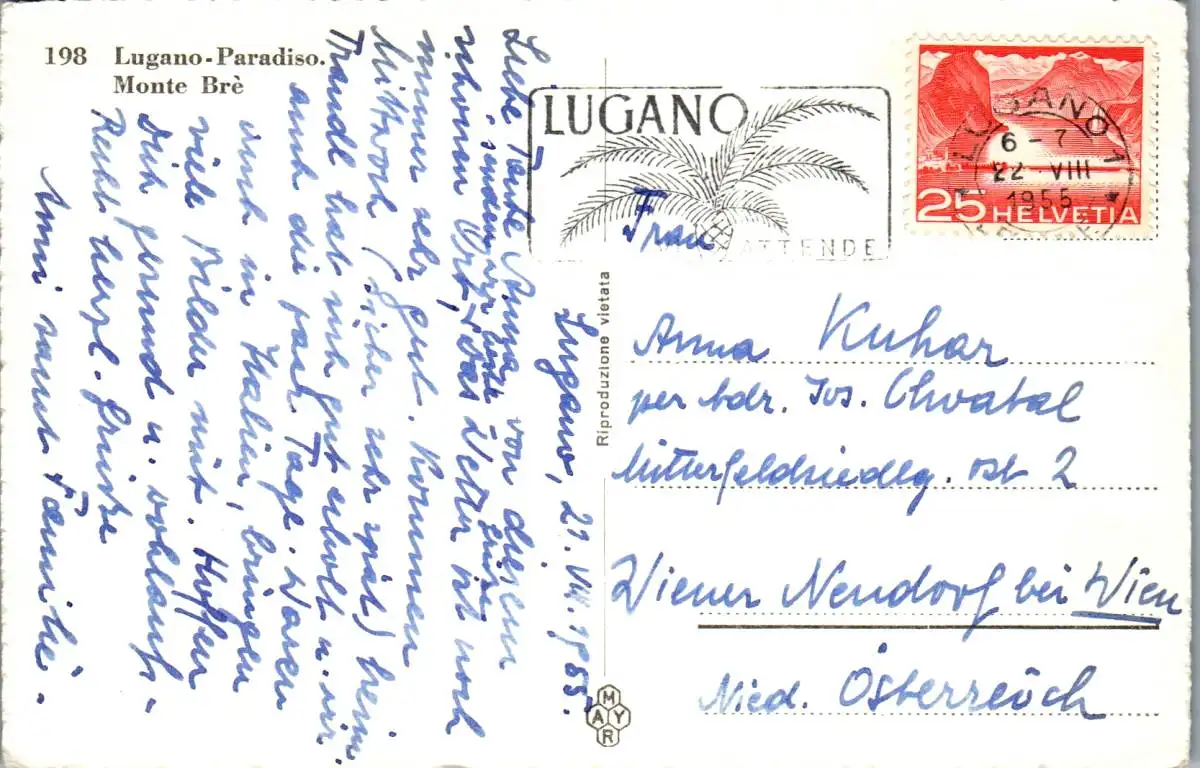 198 Lugano-Paradiso.
Monte Brè
LUGANO
ATTENDE
LUGANO 1
6 - 7
22 · VIII
1955
25 HELVETIA
Riproduzione vietata
MAYR
Lugano, 21. VIII. 1955.
Liebe Tante Anna, von diesem
schönen Ort,
Das Wetter ist noch
immer sehr gut. Kommen
Mittwoch (sicher sehr spät) heim
Traudl hat sich gut erholt u. wir
auch die paar Tage. Waren
auch in Italien, bringen
viele Bilder mit. Hoffen
Dich gesund u. wohlauf.
Recht herzl. Grüsse
Anni samt Familie.
Frau
Anna Kuhar
per Adr. Jos. Chvatal
Mitterfeldsiedlg. Ost 2
Wiener Neudorf bei Wien
Nied. Österreich